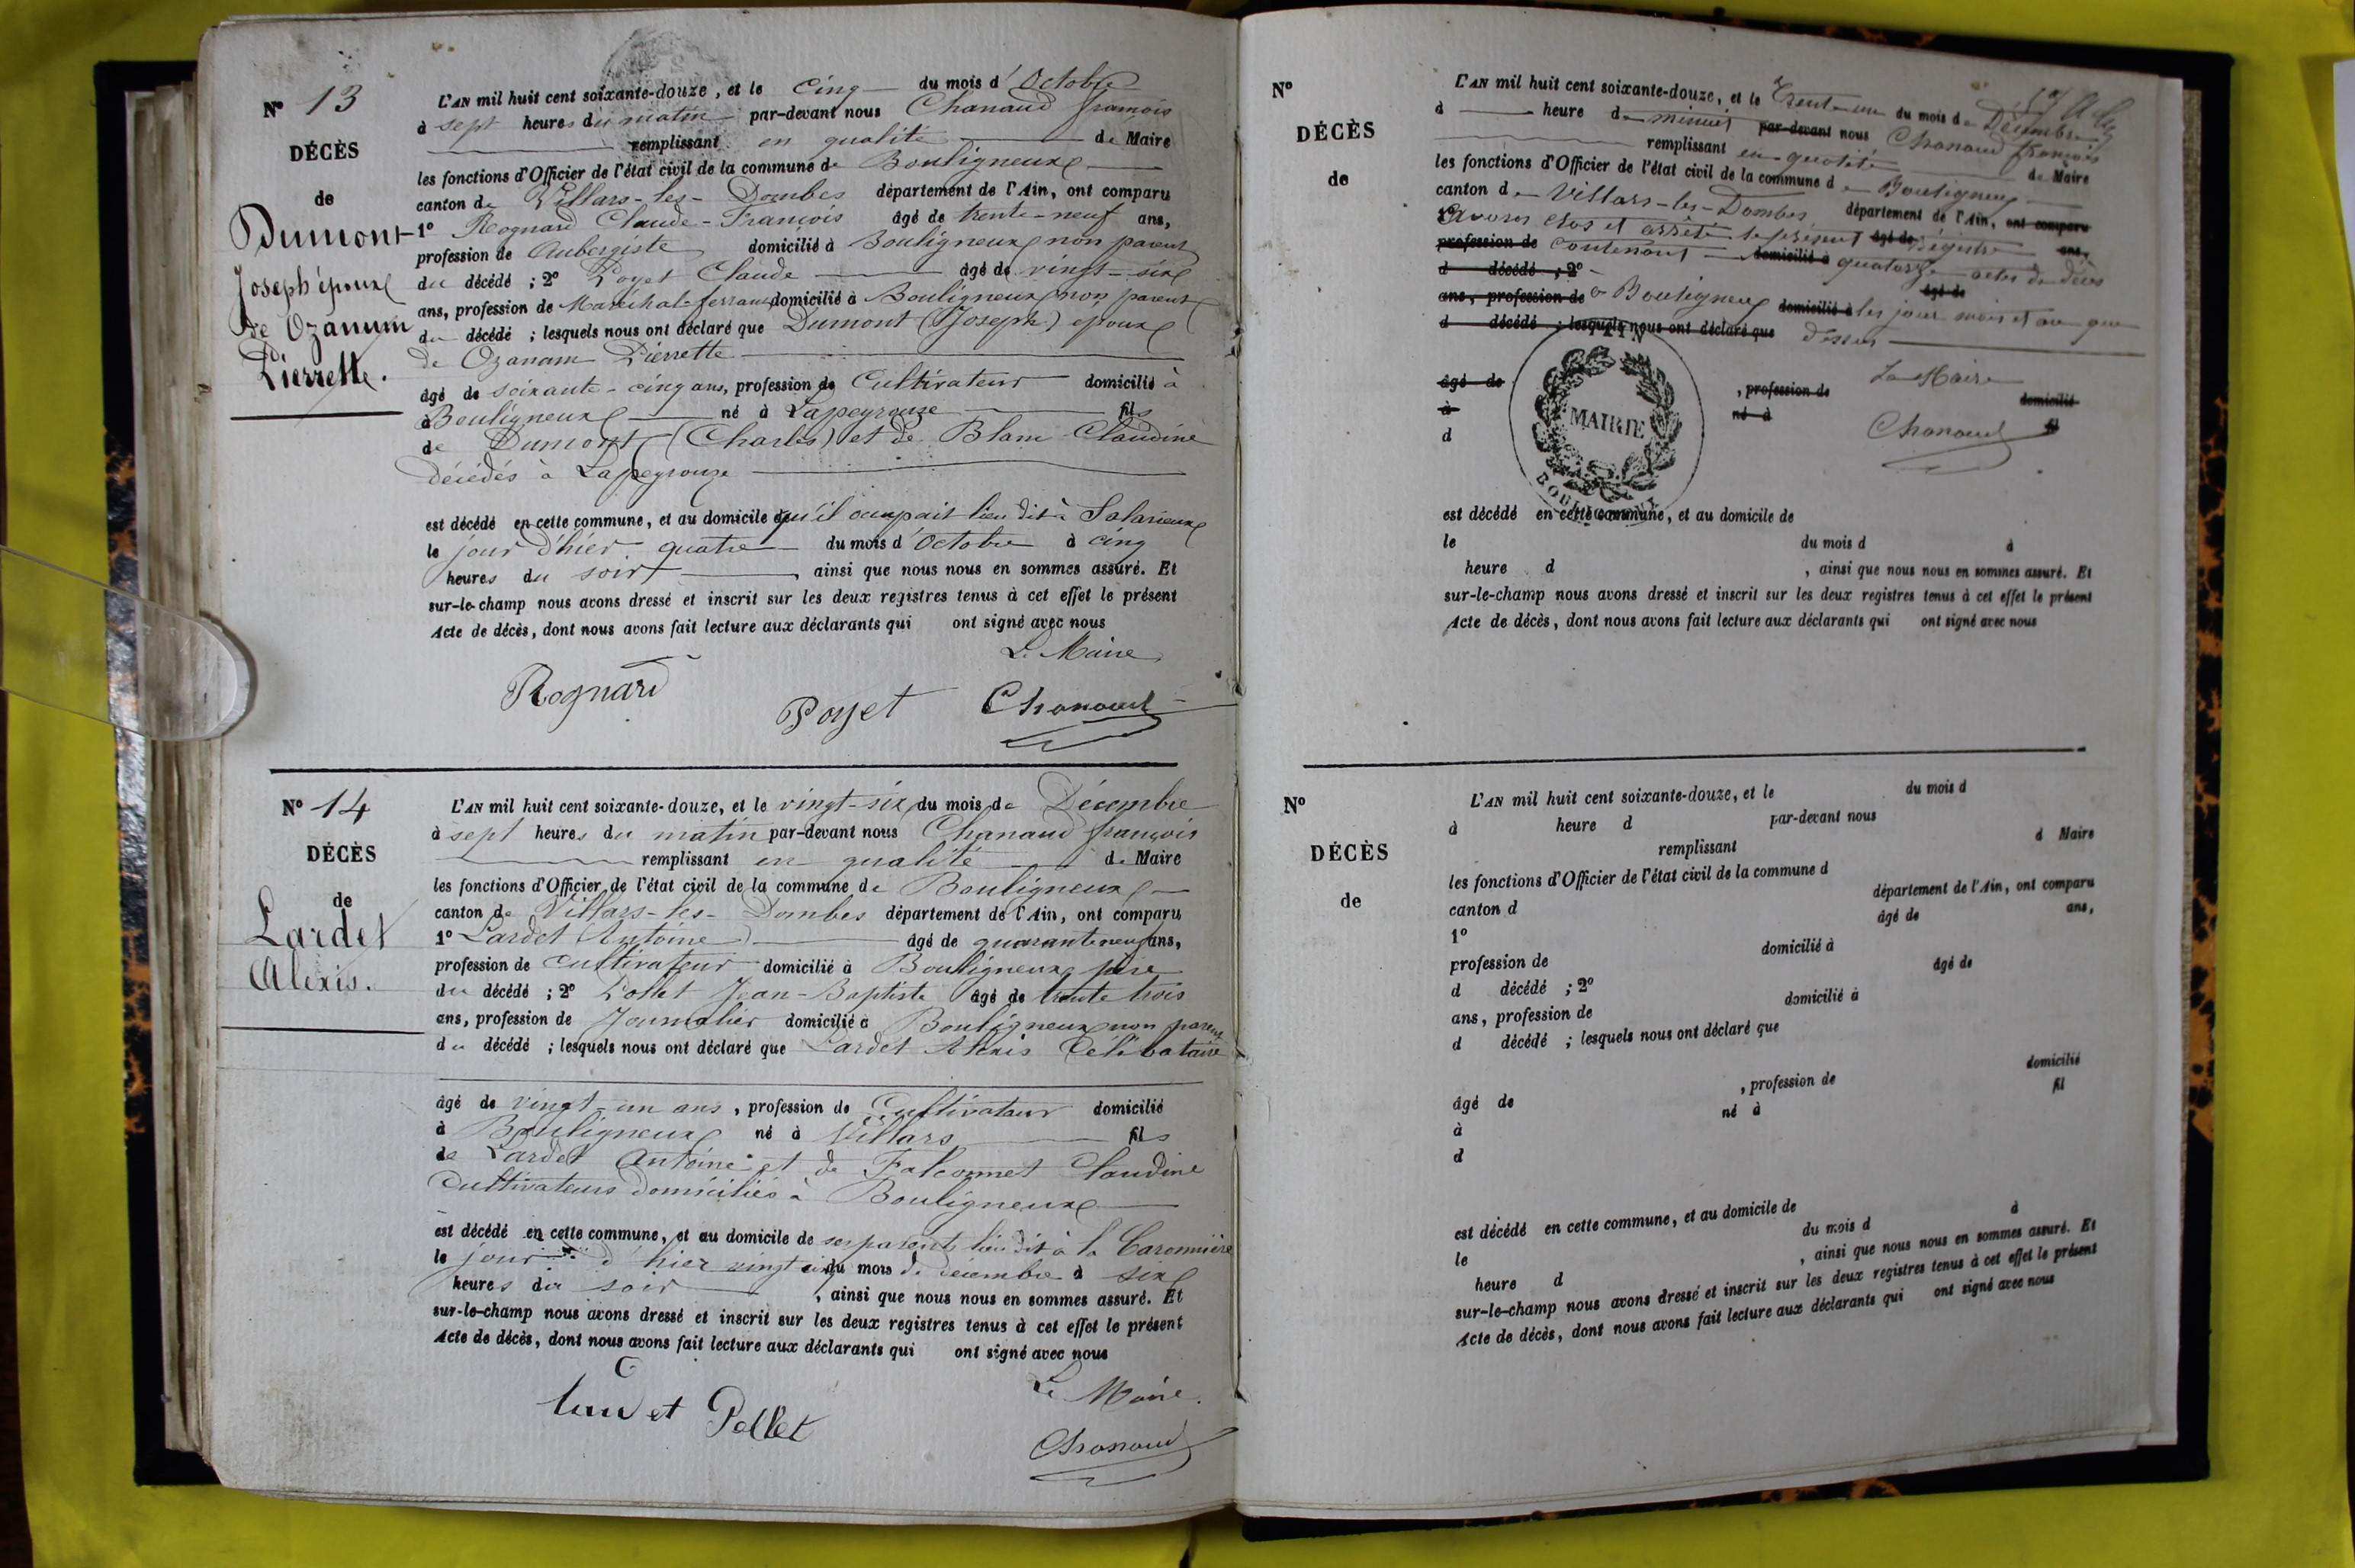 N° 13
DÉCÈS
de
Dumont
Joseph époux
de Ozanum
Pierrette.
L'AN mil huit cent soixante-douze, et le cinq du mois d'Octobre
à sept heures du matin par-devant nous Chanaud françois
remplissant en qualité de Maire
les fonctions d'Officier de l'état civil de la commune de Bouligneux
canton de Villars-les-Dombes département de l'Ain, ont comparu
1° Rognard Claude-François âgé de trente-neuf ans,
profession de Aubergiste domicilié à Bouligneux non parent
du décédé ; 2° Poyet Claude âgé de vingt-six
ans, profession de Maréchal-ferrand domicilié à Bouligneux non parent
du décédé ; lesquels nous ont déclaré que Dumont (Joseph) epoux
de Ozanam Pierrette
âgé de soixante-cinq ans, profession de Cultivateur domicilié à
à Bouligneux né à Lapeyrouze fils
de Dumont (Charles) et de Blanc Claudine
décédés à Lapeyrouze
est décédé en cette commune, et au domicile qu'il occupait lieu dit à Salarieux
le jour d'hier quatre du mois d'Octobre à cinq
heures du soir, ainsi que nous nous en sommes assuré. Et
sur-le-champ nous avons dressé et inscrit sur les deux registres tenus à cet effet le présent
Acte de décès, dont nous avons fait lecture aux déclarants qui ont signé avec nous
Le Maire
Rognard Poyet Chanaud
N° 14
DÉCÈS
de
Lardet
Alexis.
L'AN mil huit cent soixante-douze, et le vingt-six du mois de Décembre
à sept heures du matin par-devant nous Chanaud françois
remplissant en qualité de Maire
les fonctions d'Officier de l'état civil de la commune de Bouligneux
canton de Villars-les-Dombes département de l'Ain, ont comparu
1° Lardet (Antoine) âgé de quarante neuf ans,
profession de cultivateur domicilié à Bouligneux père
du décédé ; 2° Pollet Jean-Baptiste âgé de trente trois
ans, profession de Journalier domicilié à Bouligneux non parent
du décédé ; lesquels nous ont déclaré que Lardet Alexis Célibataire
âgé de vingt-un ans, profession de Cultivateur domicilié
à Bouligneux né à Villars fils
de Lardet Antoine et de Falconnet Claudine
Cultivateurs domiciliés à Bouligneux
est décédé en cette commune, et au domicile de ses parents lieu dit à la Caronnière
le jour d'hier vingt cinq du mois de décembre à six
heures du soir, ainsi que nous nous en sommes assuré. Et
sur-le-champ nous avons dressé et inscrit sur les deux registres tenus à cet effet le présent
Acte de décès, dont nous avons fait lecture aux déclarants qui ont signé avec nous
Le Maire.
Pollet
Chanaud
N°
DÉCÈS
de
L'AN mil huit cent soixante-douze, et le Trente-un du mois de Décembre
à heure de minuit par-devant nous Chanaud françois
remplissant en qualité de Maire
les fonctions d'Officier de l'état civil de la commune de Bouligneux
canton de Villars-les-Dombes département de l'Ain, ont comparu
1° avons clos et arrêté le présent âgé de registre ans,
profession de contenant domicilié à quatorze actes de décès
d décédé ; 2° âgé de
ans, profession de à Bouligneux domicilié à les jour mois et an que
d décédé ; lesquels nous ont déclaré que dessus
Le Maire
âgé de , profession de domicilié
à né à fil
d
Chanaud
MAIRIE
est décédé en cette commune, et au domicile de
le du mois d à
heure d , ainsi que nous nous en sommes assuré. Et
sur-le-champ nous avons dressé et inscrit sur les deux registres tenus à cet effet le présent
Acte de décès, dont nous avons fait lecture aux déclarants qui ont signé avec nous
N°
DÉCÈS
de
L'AN mil huit cent soixante-douze, et le du mois d
à heure d par-devant nous
remplissant d Maire
les fonctions d'Officier de l'état civil de la commune d
canton d département de l'Ain, ont comparu
1° âgé de ans,
profession de domicilié à
d décédé ; 2° âgé de
ans, profession de domicilié à
d décédé ; lesquels nous ont déclaré que
âgé de , profession de domicilié
à né à fil
d
est décédé en cette commune, et au domicile de
le du mois d à
heure d , ainsi que nous nous en sommes assuré. Et
sur-le-champ nous avons dressé et inscrit sur les deux registres tenus à cet effet le présent
Acte de décès, dont nous avons fait lecture aux déclarants qui ont signé avec nous